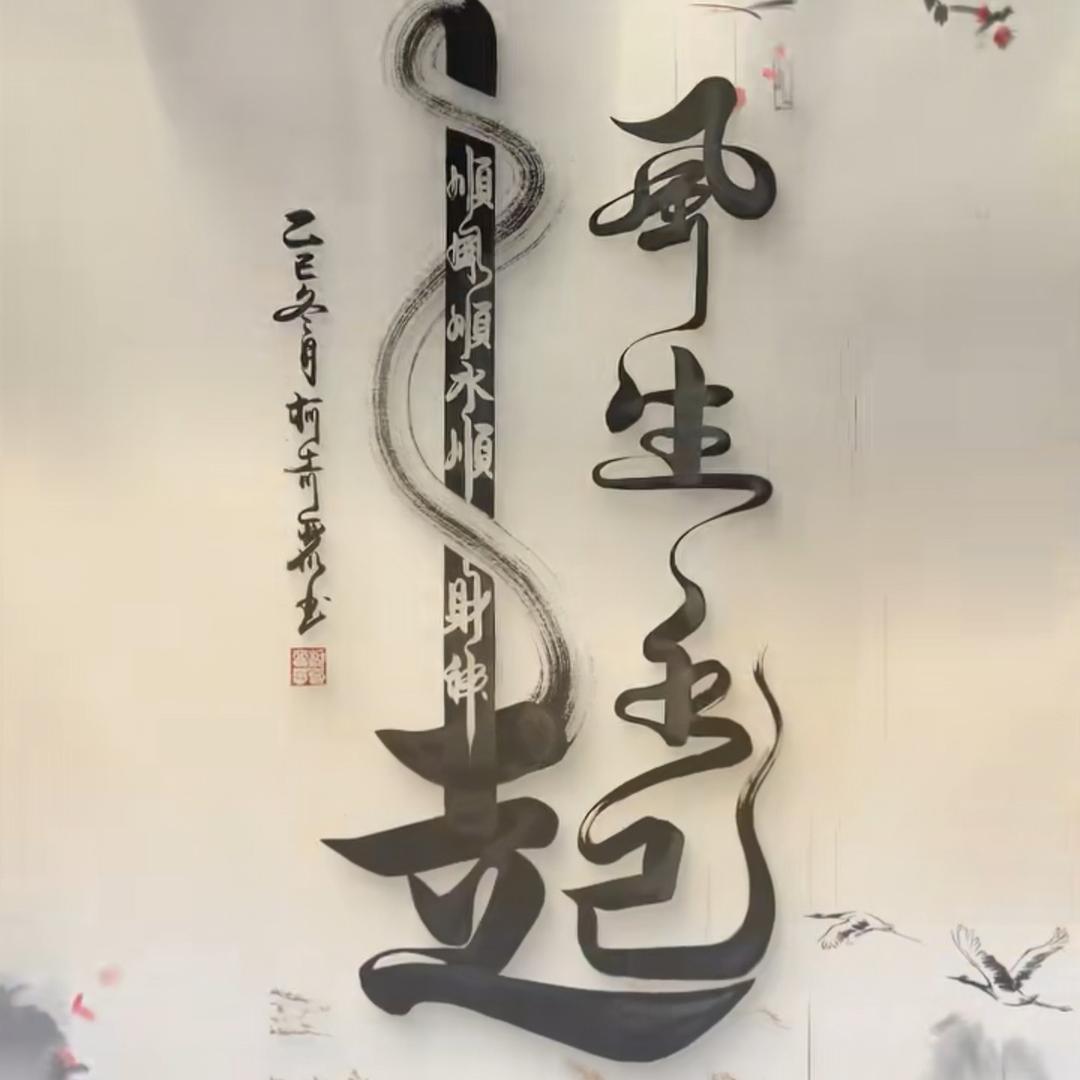 風生水起
順風順水順財神
乙巳冬月柯奇书